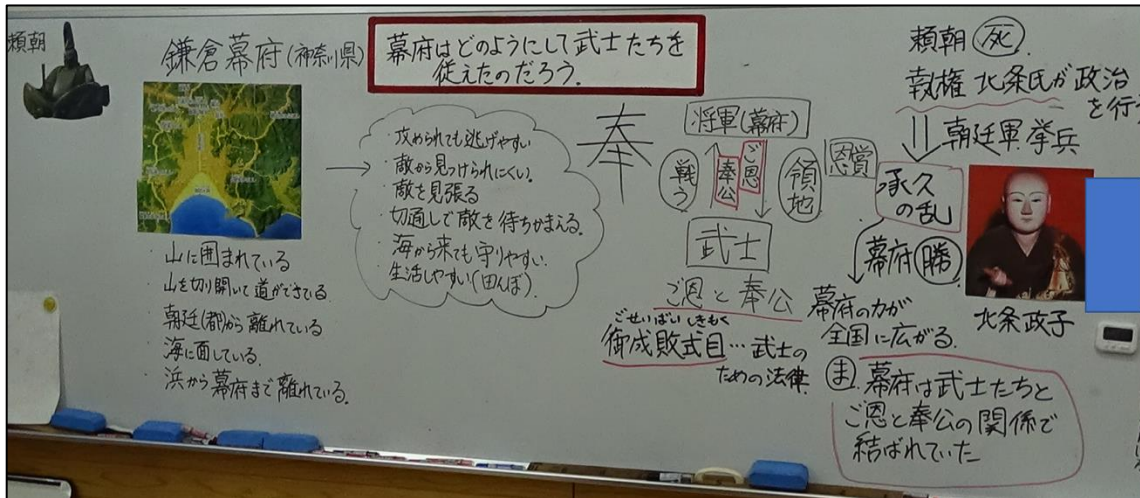 頼朝
鎌倉幕府(神奈川県)
幕府はどのようにして武士たちを
従えたのだろう.
・山に囲まれている
・山を切り開いて道ができている
・朝廷(都)から離れている
・海に面している.
・浜から幕府まで離れている.
・攻められても逃げやすい
・敵から見けられにくい.
・敵を見張る
・切通しで敵を待ちかまえる.
・海から来ても守りやすい.
・生活しやすい(田んぼ).
奉
将軍(幕府)
戦う
奉公
ご恩
領地
恩賞
武士
ご恩と奉公
ごせいばいしきもく
御成敗式目…武士の
ための法律
頼朝 死.
執権 北条氏が政治
を行
朝廷軍 挙兵
承久
の乱
幕府 勝.
幕府の力が
全国に広がる.
北条政子
ま.幕府は武士たちと
ご恩と奉公の関係で
結ばれていた